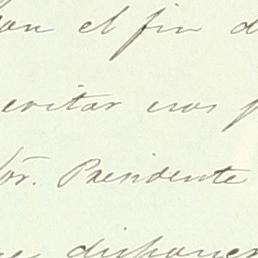 con el fin d
evitar eros p
Sor. Presidente
disponer